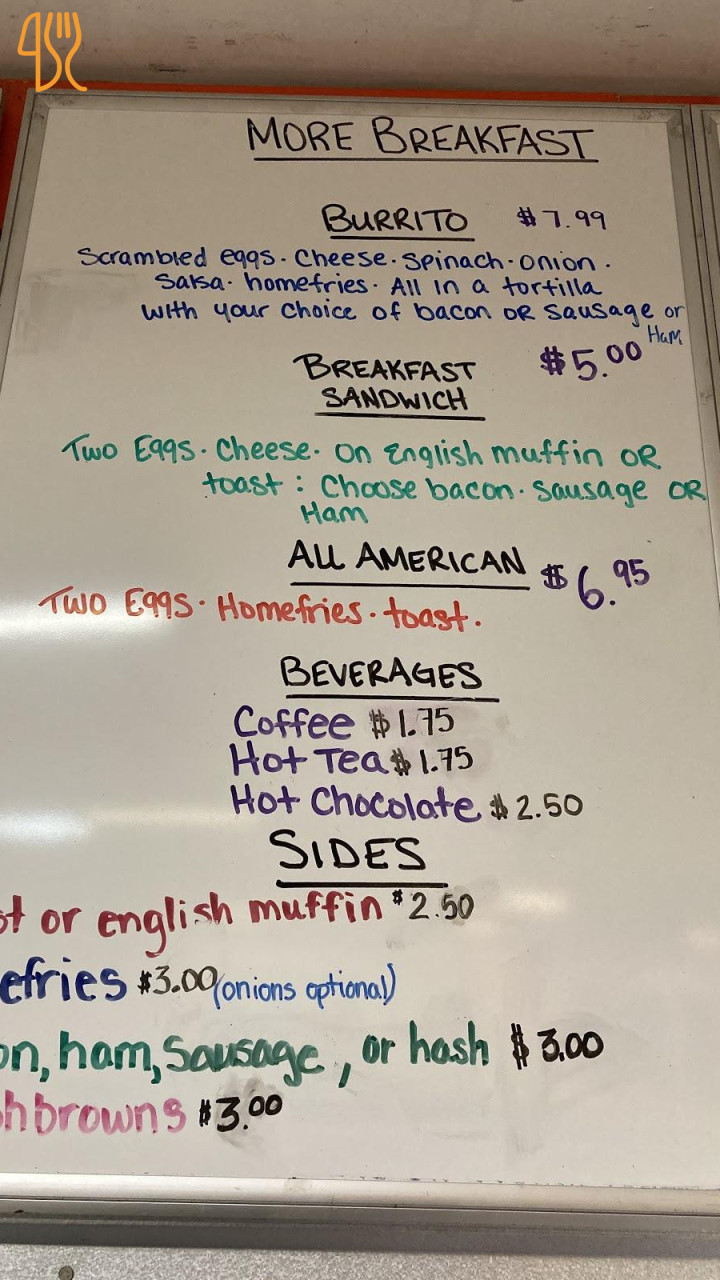 MORE BREAKFAST
BURRITO $7.99
Scrambled eggs. Cheese. Spinach. onion.
Salsa. homefries. All in a tortilla
with your choice of bacon OR sausage or
Ham
BREAKFAST $5.00
SANDWICH
Two Eggs. Cheese. on English muffin OR
toast: Choose bacon. sausage OR
Ham
ALL AMERICAN $6.95
Two Eggs. Homefries. toast.
BEVERAGES
Coffee $1.75
Hot Tea $1.75
Hot Chocolate $2.50
SIDES
st or english muffin $2.50
efries $3.00 (onions optional)
on, ham, sausage, or hash $3.00
hbrowns $3.00